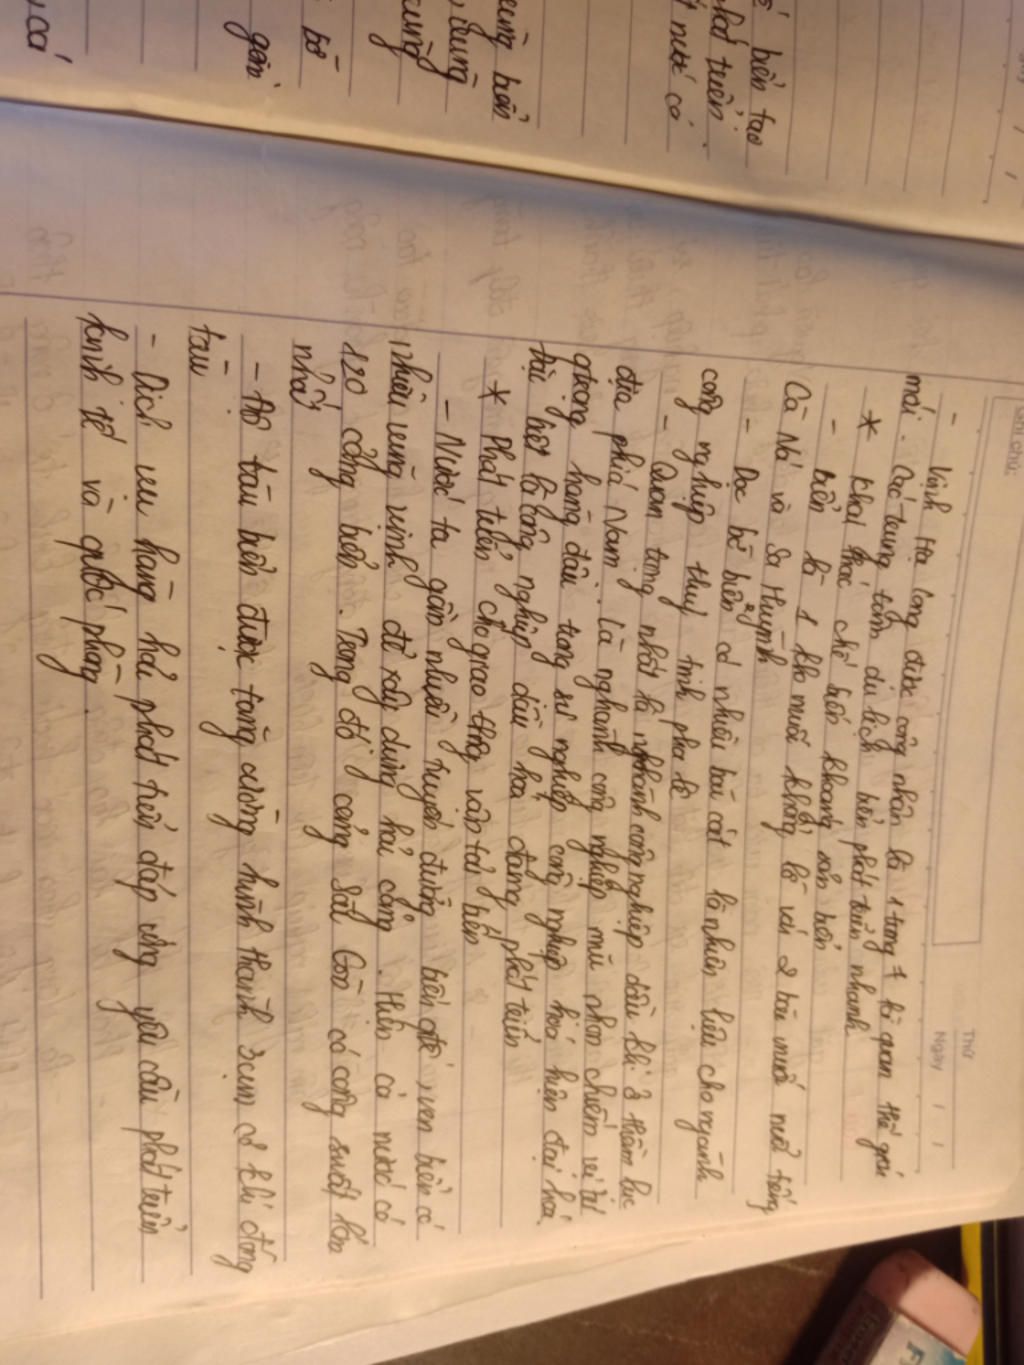 biển tạo
phát triển
nước có
vùng biển
dụng
vùng
bờ
gần
cá
Ghi chú:
Thứ
Ngày / /
- Vịnh Hạ Long được công nhận là 1 trong 7 kì quan thế giới
mới. Các trung tâm du lịch biển phát triển nhanh
* Khai thác chế biến khoáng sản biển
- Biển là 1 kho muối khổng lồ với 2 bãi muối nổi tiếng
Cà Ná và Sa Huỳnh
- Dọc bờ biển có nhiều bãi cát là nhiên liệu cho ngành
công nghiệp thuỷ tinh pha lê
- Quan trọng nhất là nghành công nghiệp dầu khí ở thềm lục
địa phía Nam. Là nghành công nghiệp mũi nhọn chiếm vị trí
hàng đầu trong sự nghiệp công nghiệp hoá hiện đại hoá.
biệt là công nghiệp dầu hoá đang phát triển
* Phát triển cho giao thông vận tải biển
- Nước ta gần nhiều tuyến đường biển quốc tế, ven biển có
nhiều vũng vịnh để xây dựng hải cảng. Hiện cả nước có
120 cảng biển. Trong đó cảng Sài Gòn có công suất lớn
nhất
- Đội tàu biển được tăng cường hình thành 3 cụm cơ khí đóng
tàu
- Dịch vụ hàng hải phát triển đáp ứng yêu cầu phát triển
kinh tế và quốc phòng.